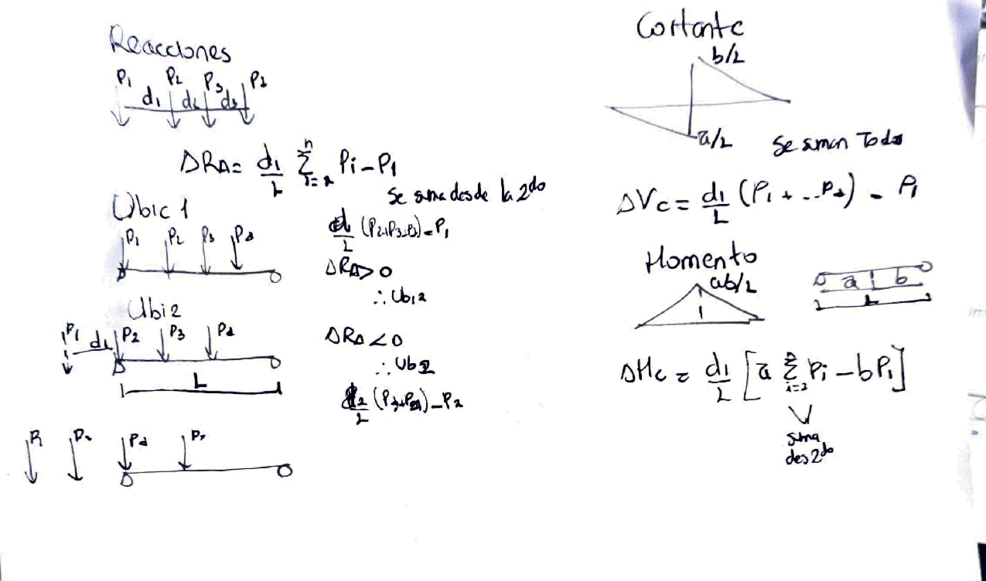 Reacciones
P1 P2 P3 P4
d1 d2 d3
ΔRA = d1/L Σ(i=2, n) Pi - P1
Se suma desde la 2do
Ubic 1
P1 P2 P3 P4
d1/L (P2+P3+P4) - P1
ΔRA > 0
∴ Ubi 2
Ubi 2
P1 d1 P2 P3 P4
L
ΔRA < 0
∴ Ubi 2
P1 P2
Cortante
b/L
a/L
Se suman Todo
ΔVc = d1/L (P1 + ... P4) - P1
Momento
ab/L
a b
L
ΔMc = d1/L [a Σ(i=2) Pi - bP1]
suma
des 2do